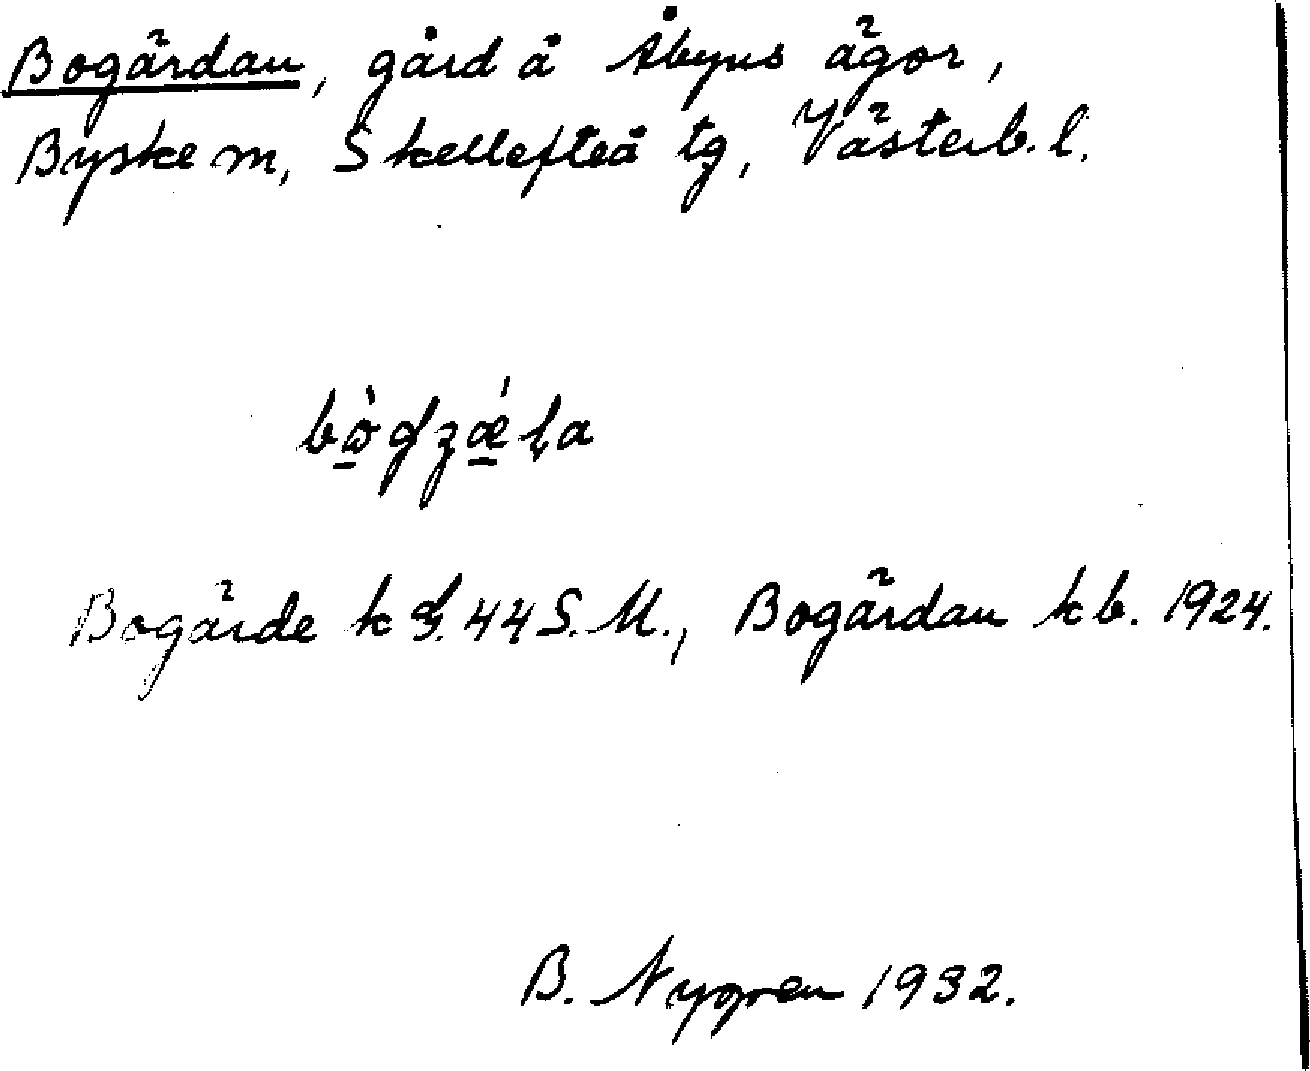 Bogärdan, gård å Åbyns ägor,
Byske sn, Skellefteå tg, Västerb. l.
Bogärde k S. 44 S. M., Bogärdan kb. 1924.
B. Nygren 1932.